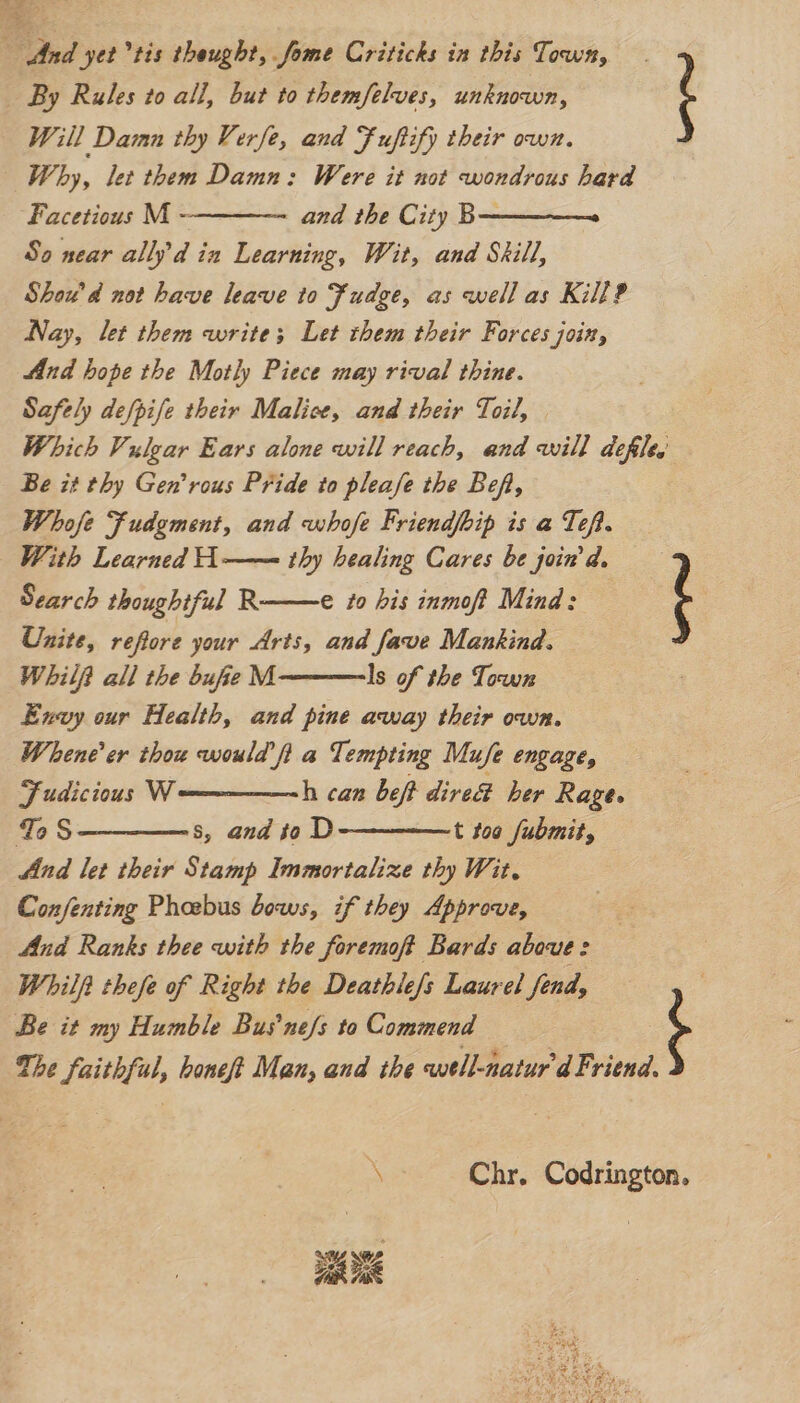 And yet 'tis thought, ſome Criticks in this Town,
By Rules to all, but to themſelves, unknown,
Will Damn thy Verſe, and Juſtify their own.
Why, let them Damn: Were it not wondrous hard
Facetious M ———— and the City B————
So near ally'd in Learning, Wit, and Skill,
Shou'd not have leave to Judge, as well as Kill?
Nay, let them write; Let them their Forces join,
And hope the Motly Piece may rival thine.
Safely deſpiſe their Malice, and their Toil,
Which Vulgar Ears alone will reach, and will defile.
Be it thy Gen'rous Pride to pleaſe the Beſt,
Whoſe Judgment, and whoſe Friendſhip is a Teſt.
With Learned H—— thy healing Cares be join'd.
Search thoughtful R——e to his inmoſt Mind:
Unite, reſtore your Arts, and ſave Mankind.
Whilſt all the buſie M———ls of the Town
Envy our Health, and pine away their own.
Whene'er thou would'ſt a Tempting Muſe engage,
Judicious W————h can beſt direct her Rage.
To S————s, and to D————t too ſubmit,
And let their Stamp Immortalize thy Wit.
Conſenting Phœbus bows, if they Approve,
And Ranks thee with the foremoſt Bards above:
Whilſt theſe of Right the Deathleſs Laurel ſend,
Be it my Humble Bus'neſs to Commend
The faithful, honeſt Man, and the well-natur'd Friend.
Chr. Codrington.